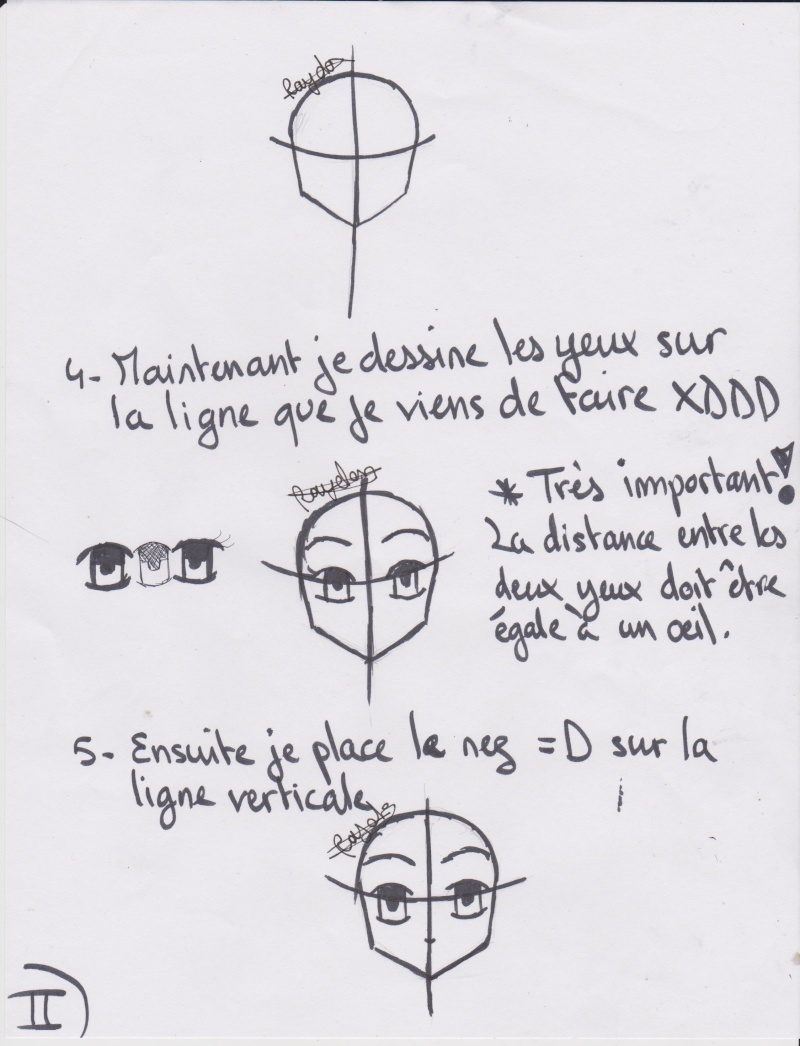 4- Maintenant je dessine les yeux sur
la ligne que je viens de faire XDDD
* Très important!
La distance entre les
deux yeux doit être
égale à un œil.
5- Ensuite je place le nez =D sur la
ligne verticale
II